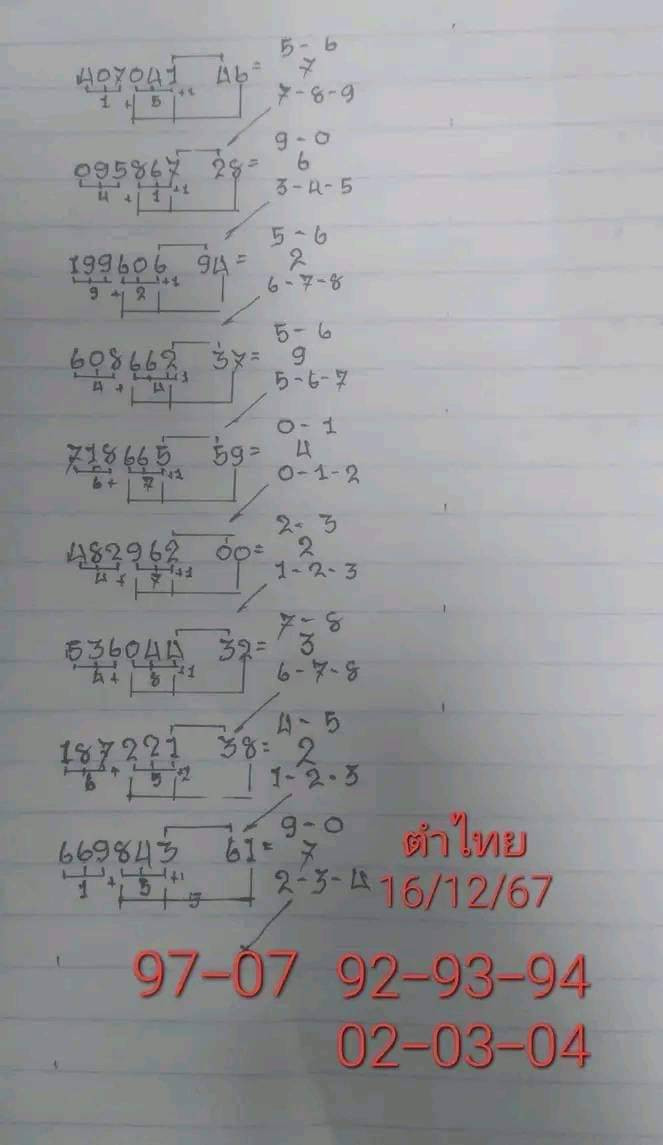 5-6
407041 46= 7
1 + 5 +1 7-8-9
9-0
095867 28= 6
4 + 1 +1 3-4-5
5-6
199606 94= 2
9 + 2 +1 6-7-8
5-6
608662 37= 9
4 + 4 5-6-7
0-1
718665 59= 4
6+ 7 0-1-2
2-3
482962 00= 2
4+ 7 +1 1-2-3
7-8
536044 32= 3
4+ 8 +1 6-7-8
4-5
187221 38= 2
6 + 5 1-2-3
9-0
669843 61= 7
1 + 5 +1 2-3-4
ตำไทย
16/12/67
97-07 92-93-94
02-03-04